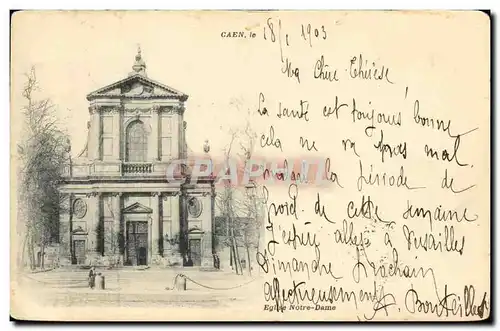 CAEN, le 18/1 1903
Ma Chère Thérèse
La santé est toujours bonne
cela ne va pas mal
malgré la période de
froid de cette semaine
J'espère aller à Versailles
Dimanche prochain
Affectueusement
A. Bouteiller
Eglise Notre-Dame